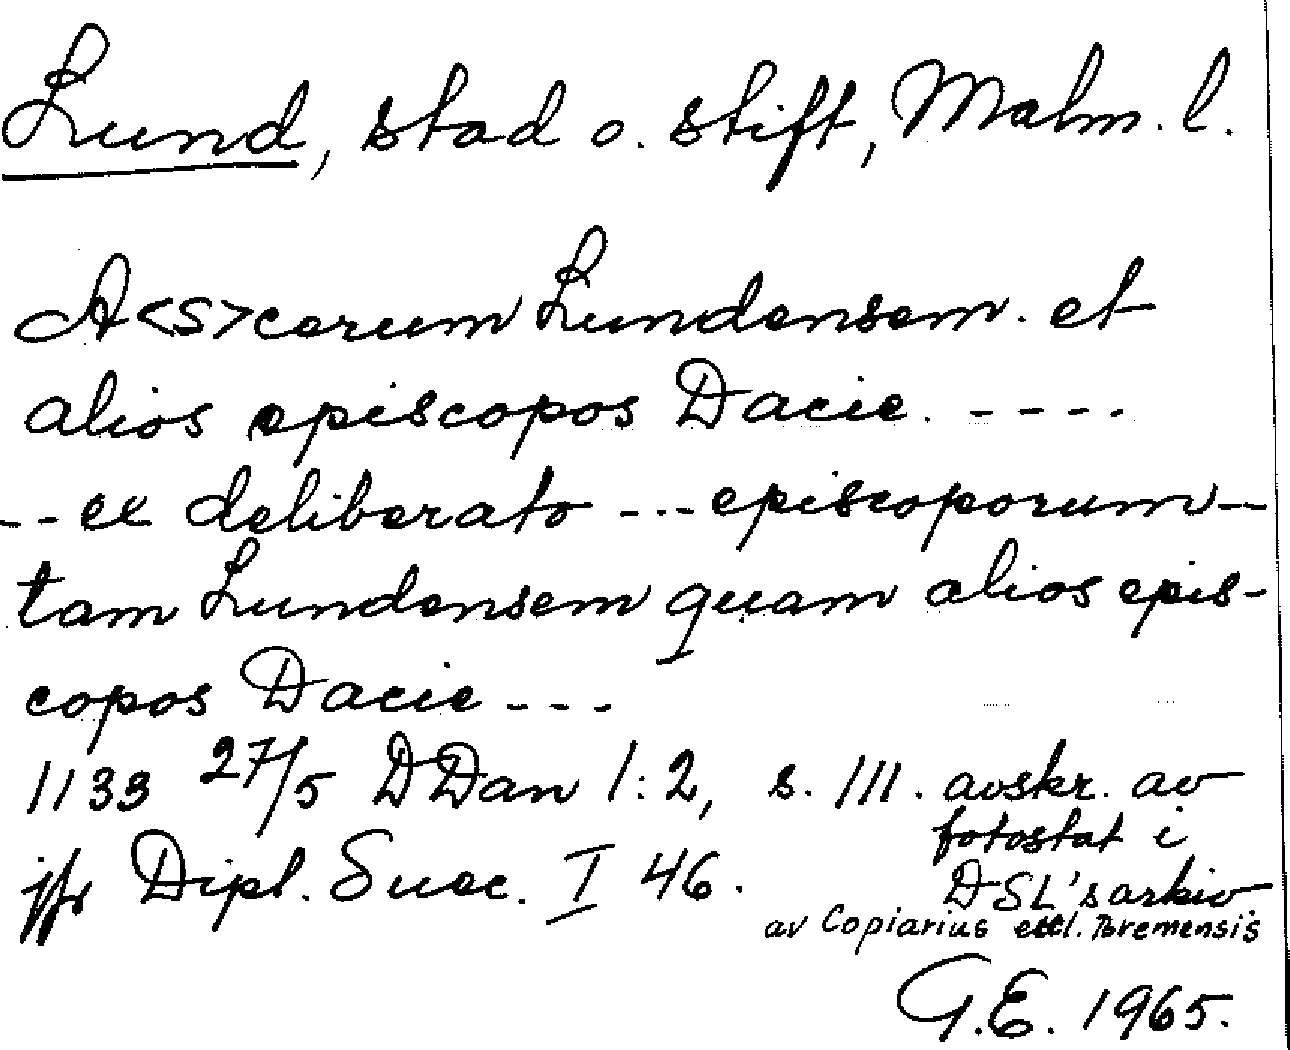 Lund, stad o. stift, Malm. l.
A<s>cerum Lundensem. et
alios episcopos Dacie. ----
-- ex deliberato --- episcoporum --
tam Lundensem quam alios epis-
copos Dacie ---
1133 27/5 DDan 1:2, s. 111. avskr. av
fotostat i
jfr Dipl. Suec. I 46. DSL's arkiv
av Copiarius eccl. Bremensis
G.E. 1965.